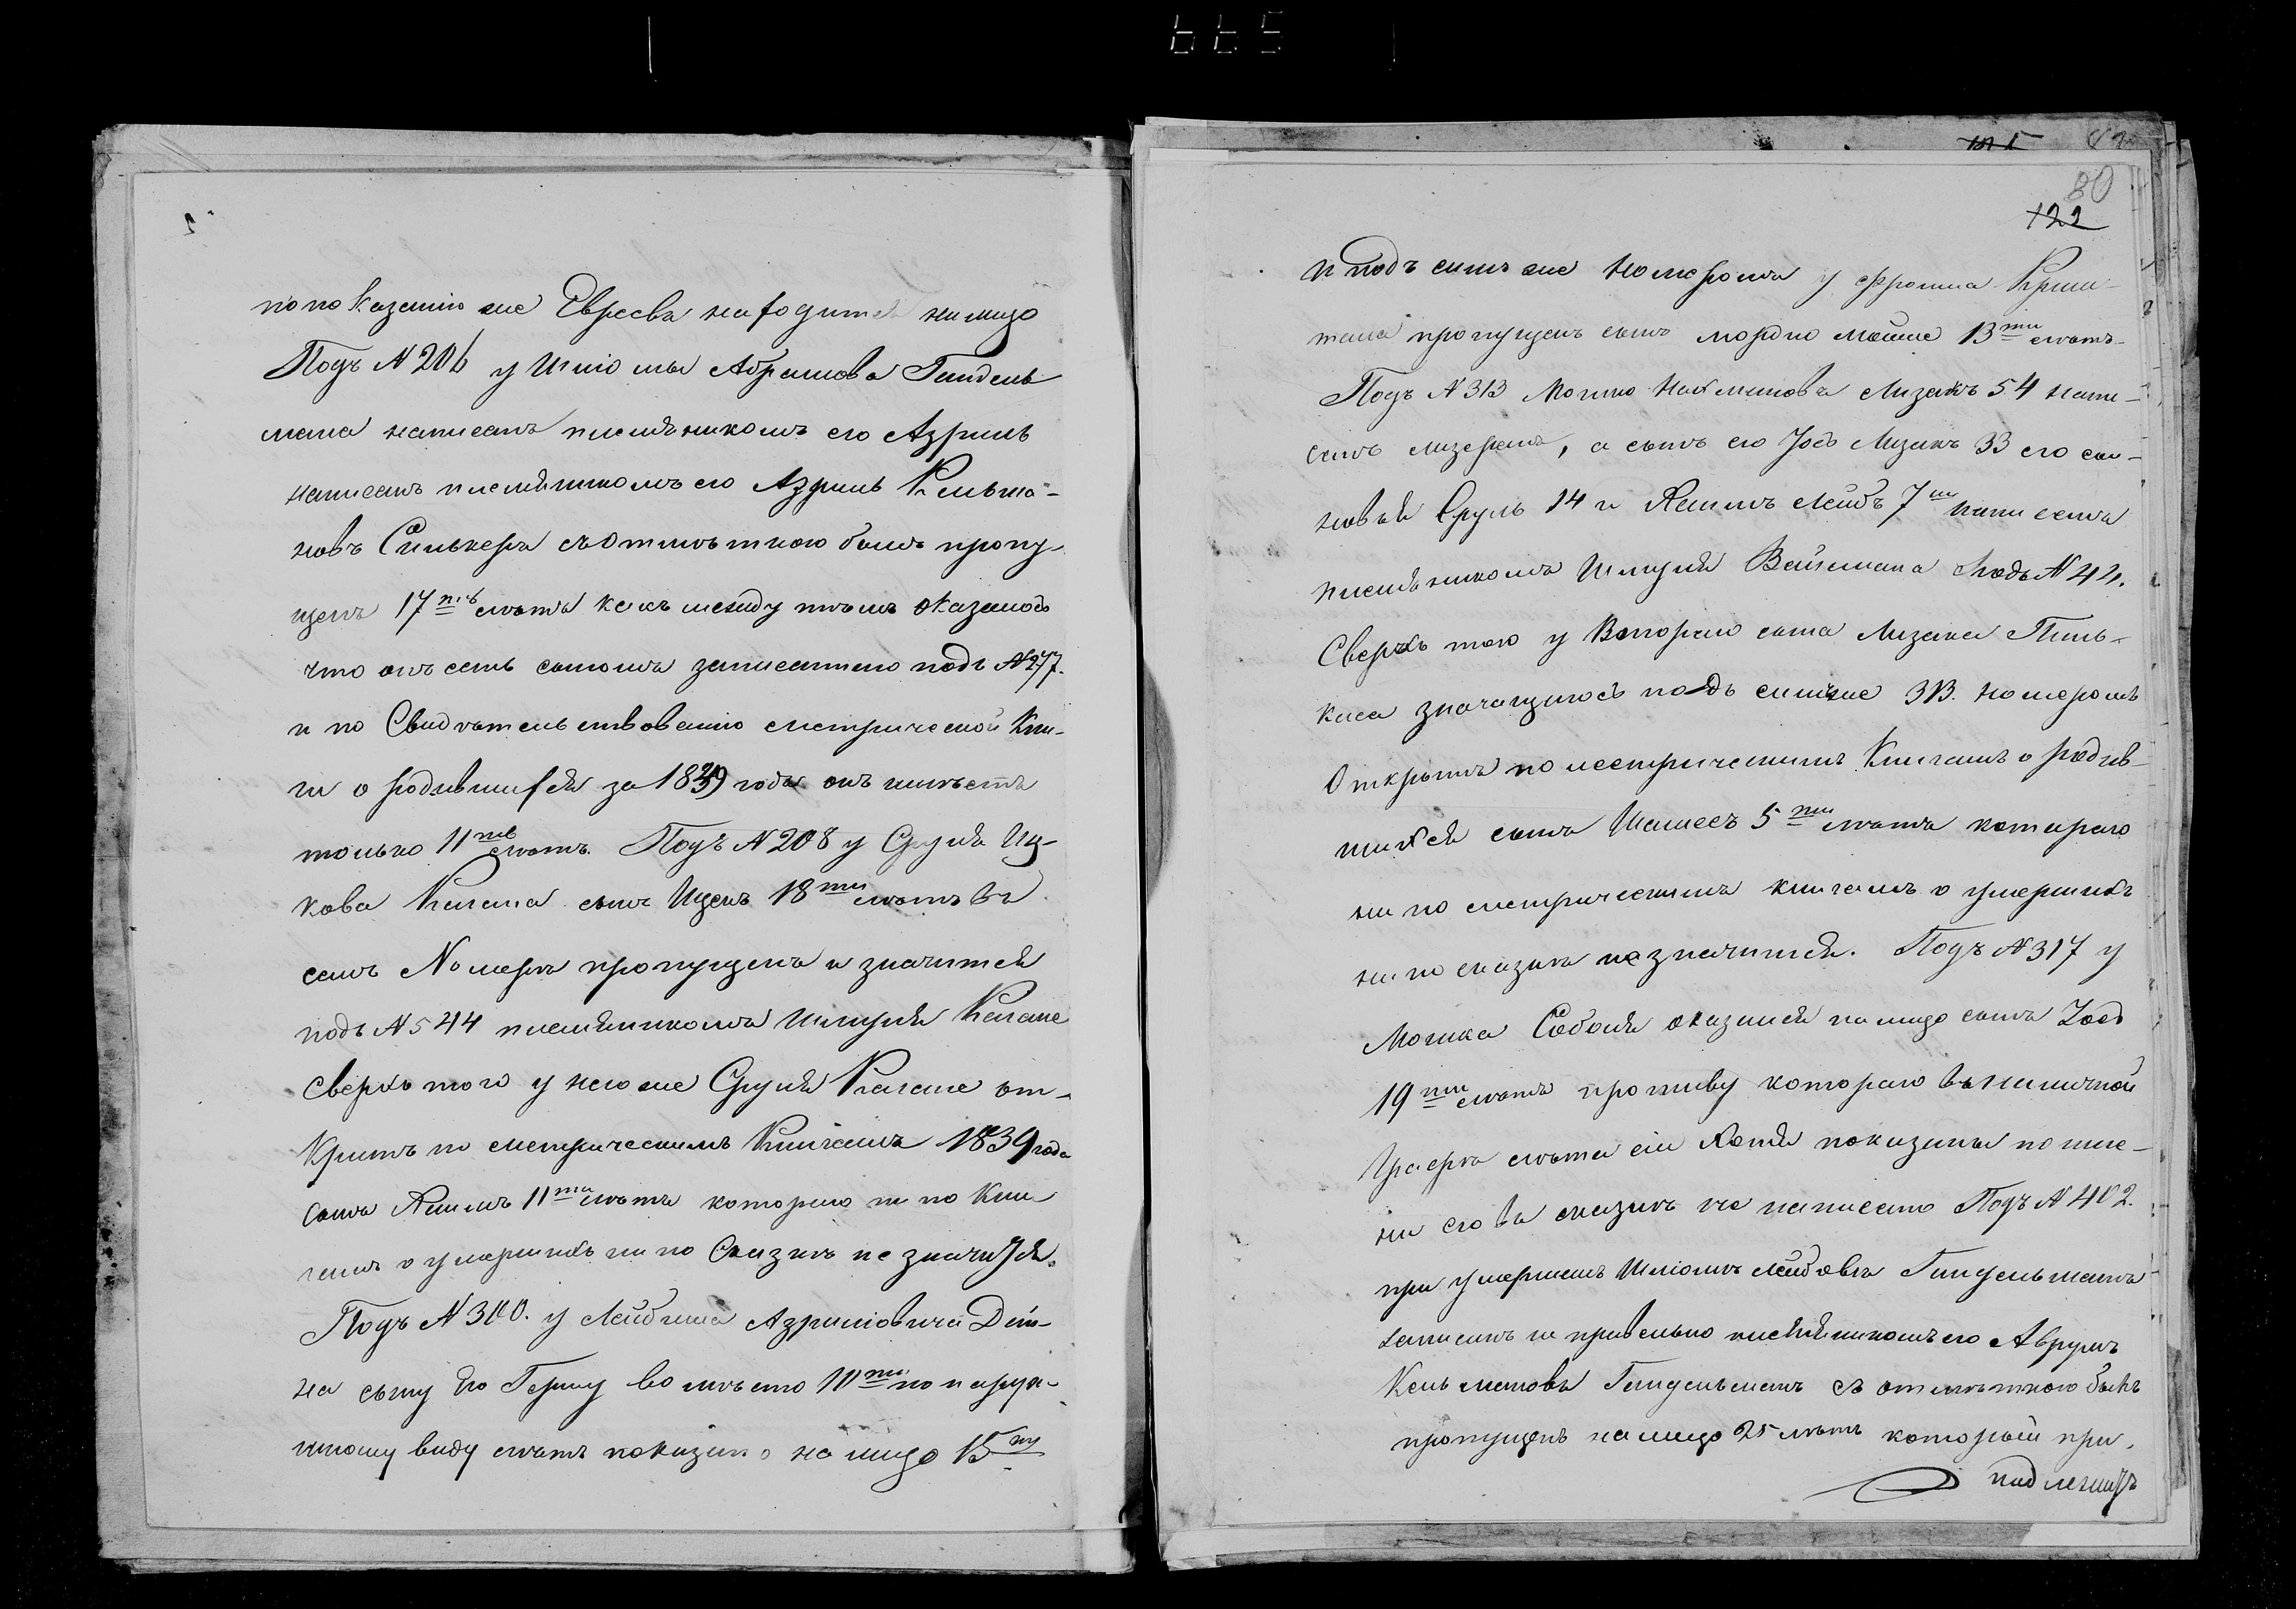 по показанію же Евреевъ находится на лицо
Подъ N 206 у Шліомы Абрамова Гиндель-
мана написанъ племянникомъ его Азріиль
написанъ племянникомъ его Азріиль Кельма-
новъ Спивкеръ съ отмѣткою былъ пропу-
щенъ 17 ть лѣтъ какъ между тѣмъ оказалось
что онъ есть сыномъ записаннаго подъ N 277.
и по Свидѣтельствованію метрической Кни-
ги о родившихся за 1839 годъ онъ имѣетъ
только 11 ть лѣтъ. Подъ N 208 у Сруля Иц-
кова Кагана сынъ Ицекъ 18 ти лѣтъ въ
семъ Номеръ пропущенъ и значится
подъ N 544 племянникомъ Шмуля Кагане
Сверхъ того у него же Сруля Кагане от-
крытъ по метрическимъ Книгамъ 1839 года
сынъ 11 ти лѣтъ котораго ни по Кни
гамъ о умершихъ ни по Сказкѣ не значится.
Подъ N 300. у Лейбиша Азриловича Дей-
на сыну Его Гершу вомѣсто 10 ти по наруж-
ному виду лѣтъ показано на лицо 15 ть
80
122
и подъ симъ же Номеромъ у Фроима
мана пропущенъ сынъ Мордко Мойше 13 ти лѣтъ
Подъ N 313 Мошко Нахмановъ Лизакъ 54 напи-
санъ Лизеръ, а сынъ его Іось Лизакъ 33 его сы-
новья Сруль 14 и Лейбъ 7 ми написанъ
племянникомъ Шмуля Вайсмана подъ N 42.
Сверхъ того у Втораго сына Лизака Пинь-
каса значащагося подъ симъ же 313. номеромъ
Открытъ по метрическимъ Книгамъ о родив-
шихся сынъ 5 ти лѣтъ котораго
ни по метрическимъ книгамъ о умершихъ
ни по сказкѣ не значится. Подъ N 317 у
Мошка Соболя оказался на лицо сынъ Іось
19 ти лѣтъ противу котораго въ наличной
Графѣ лѣта его хотя показаны но име-
ни его въ сказкѣ не написано Подъ N 402.
при умершемъ Шліомѣ Лейбовѣ Гиндельманъ
записанъ неправельно племянникомъ его Аврумъ
Кельмановъ Гиндельманъ съ отмѣткою былъ
пропущенъ на лицо 25 лѣтъ который при-
надлежитъ